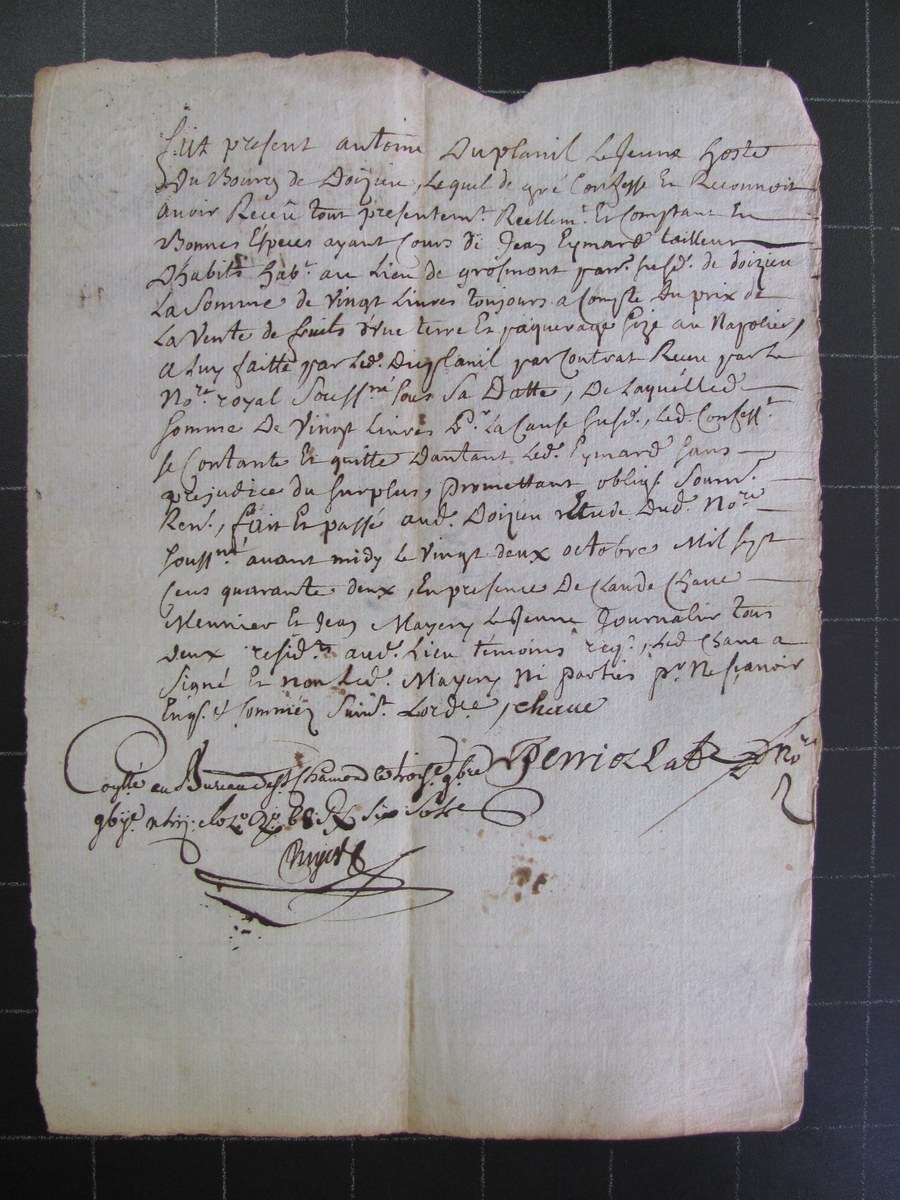 Fut present antoine Duplanil Le Jeune hoste
Du Bourg de Doizieu, Lequel de gré Confesse Et Reconnoit
avoir Receu tout presentemt. Reellemt. Et Comptant En
Bonnes Especes ayant Cours de Jean Eymard tailleur
D'habits habt. au Lieu de grosmont parr. susd. de doizieu
La Somme de Vingt Livres toujours a Compte Du prix de
La Vente de fruits d'Une terre Et paquerage size au Napolier,
a Luy faitte par Led. Duplanil par Contrat Receu par Le
Nore. royal Soussné. sous Sa Datte, De Laquelled.
somme De Vingt Livres pr. La Cause susd., Led. Confesst.
se Contante Et quitte Dautant Led. Eymard sans
prejudice du surplus, promettant oblig. soum.
Ren., fait Et passé aud. Doizieu Etude Dud. Nore.
soussné. avant midy Le Vingt deux octobre Mil sept
Cens quarante deux, En presence De Claude Chave
Meunier Et Jean Mayery Le Jeune Journalier tous
deux residts. aud. Lieu témoins req., Led. Chave a
Signé Et non Led. Mayery Ni parties pr. Ne sçavoir
Enqs. Et Sommez Suivt. Lordce, chave
nore
au Bureau de St Chamond le trois 9bre
six sols